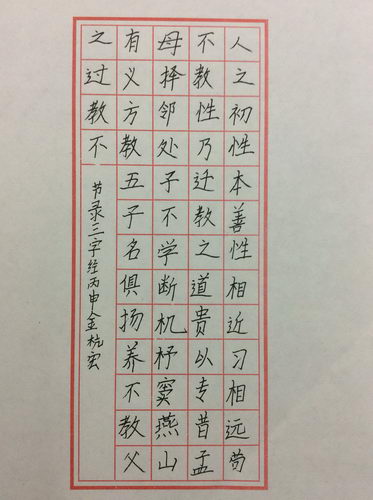 人之初性本善性相近习相远苟
不教性乃迁教之道贵以专昔孟
母择邻处子不学断机杼窦燕山
有义方教五子名俱扬养不教父
之过教不
节录三字经丙申金杭宏